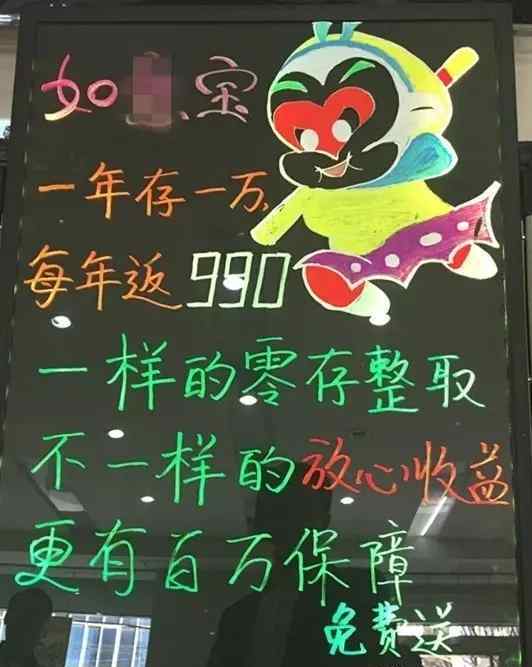 如 宝
一年存一万,
每年返990
一样的零存整取
不一样的放心收益
更有百万保障
免费送